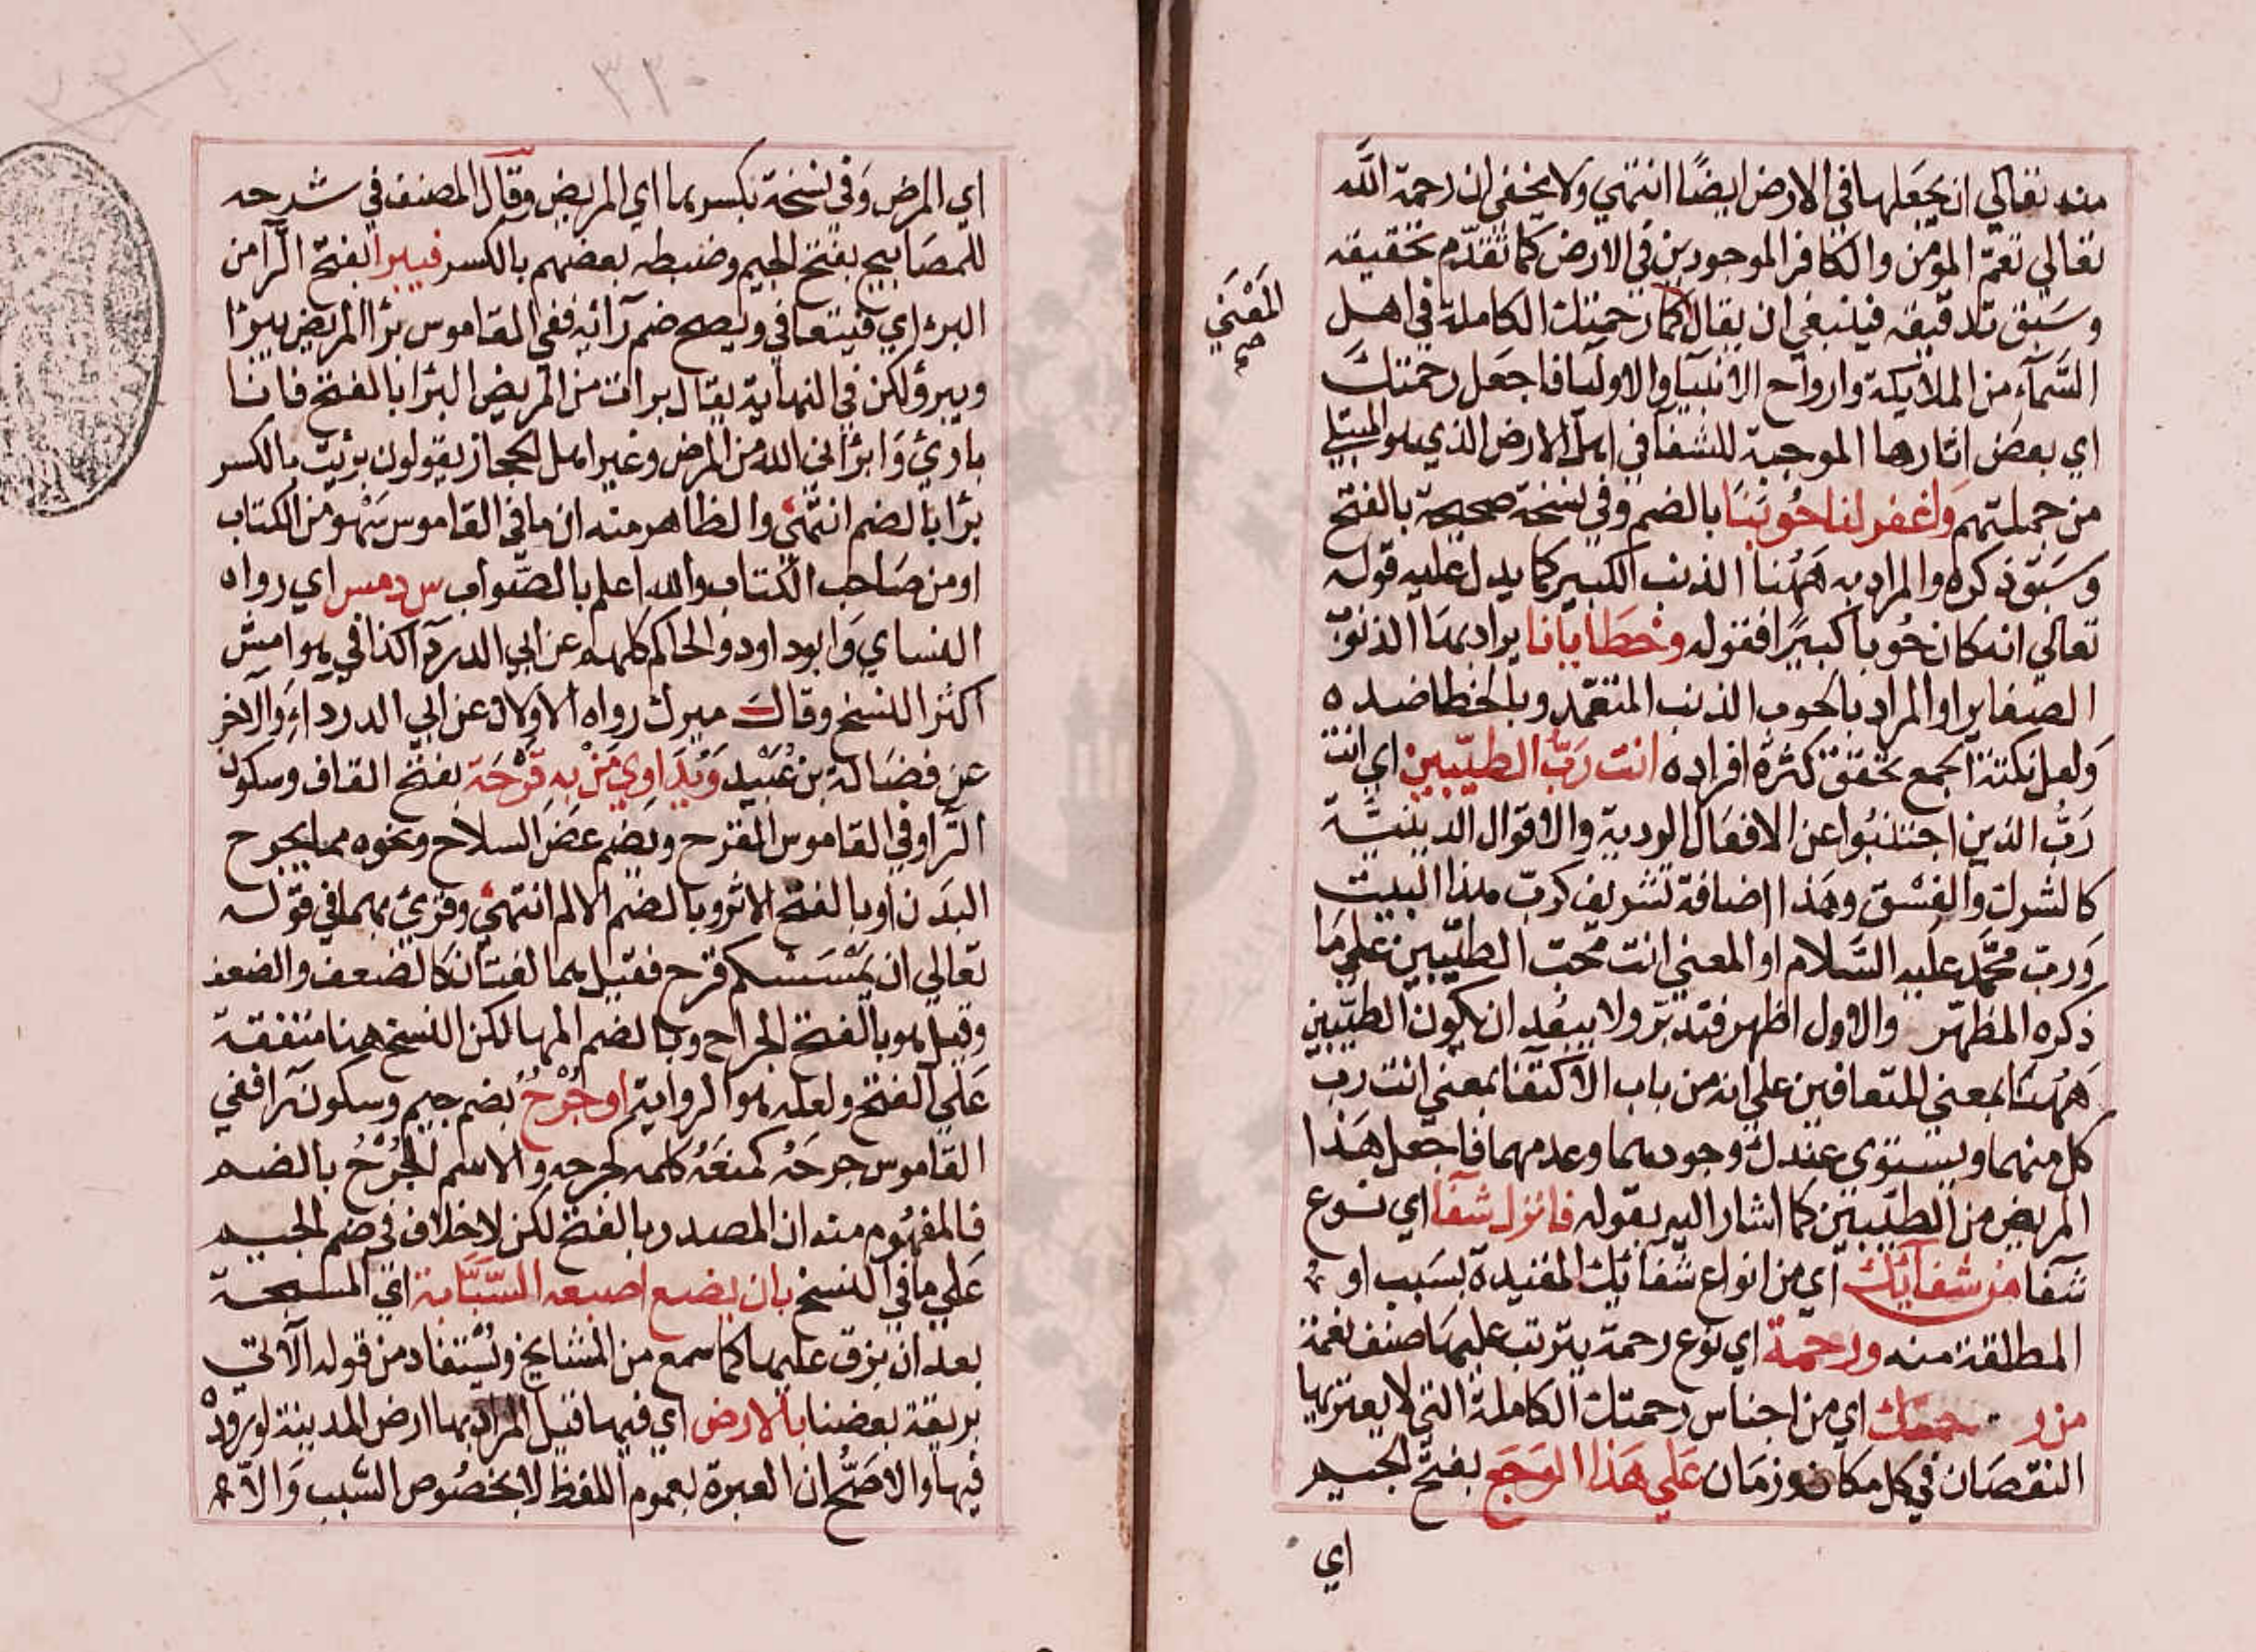 منه تعالي ان يجعلها في الارض ايضًا انتهي ولا يخفى ان رحمة الله
تعالي تعمّ المؤمن والكافر الموجودين في الارض كما تقدّم تحقيقه
وسَبق تدقيقه فينبغي ان يقال كما رحمتك الكاملة في اهل
السَّمآء من الملايكة وارواح الانبيآ والاوليآ فاجعل رحمتك
اي بعض اثارها الموجبة للشفآ في اهل الارض الذي هو المبتلي
من جملتهم واغفر لنا حُوبَنا بالضم وفي نسخة صحيحة بالفتح
وسَبق ذكره والمراد به هَهُنا الذنب الكبير كما يدل عليه قوله
تعالي انه كان حُوبا كبيرًا فقوله وخطايانا يراد بها الذنوب
الصغاير او المراد بالحوب الذنب المتعمد وبالخطا ضده
وَلعل نكتة الجمع تحقق كثرة افراده انت رَبّ الطيّبين اي انت
رَبُّ الذين اجتنبُوا عن الافعال الردية والاقوال الدينيّة
كالشرك والفسْق وهَذا اضافة تشريف كربّ هذا البيت
وَربّ محمّد عليه السَّلام او المعني انت محبّ الطيّبين علي مَا
ذكره المظهر والاول اظهر فتدبّر ولا يبعُد ان يكون الطيّبين
هَهُنا بمعني المتعافين علي انه من باب الاكتفا بمعني انت رب
كل منهما ويستوى عندك وجودهما وعدمهما فاجعل هَذا
المريض من الطيّبين كما اشار اليه بقوله فانزل شفآ اي نوع
شفآ من شفآئك اي من انواع شفائك المقيدة بسَبب او
المطلقة منه ورحمة اي نوع رحمة يترتب عليهَا صنف نعمة
من رحمتك اي من اجناس رحمتك الكاملة التي لا يعتريها
النقصَان في كل مكان وزمَان عَلي هَذا الوَجَع بفتح الجيم
اي
المَعْنَي
صح
٣٢٠
اي المرض وَفي نسخة بكسرها اي المريض وقال المصنف في شرحه
للمصَابيح بفتح الجيم وضبطه بعضهم بالكسر فيبرا بفتح الرآ من
البرء اي فيتعافي ويصح ضم رآئه ففي القاموس برا المريض يبرا
ويبرؤ لكن في النهاية يقال برات من المريض البرا بالفتح فانا
بارئ وَابرَاني الله من المرض وغير اهل الحجاز يقولون برئت بالكسر
برًا بالضم انتهَي والظاهر منه ان ما في القاموس سَهْو من الكتاب
او من صَاحب الكتاب والله اعلم بالصَّواب س د مس اي رواه
النساي وَابوداود والحاكم كلهم عن ابي الدردآ كذا في هوامش
اكثر النسخ وقال ميرك رواه الاولان عن ابي الدردآء وَالاخر
عن فضَالة بن عُبَيْد وَيُدَاوِي مَنْ بِهِ قَرْحَة بفتح القاف وسكون
الرآ وفي القاموس القرح ويضم عضّ السلاح ونحوه مما يجرح
البدَن او بالفتح الاثر وبالضم الالم انتهَي وقرئ بهما في قوله
تعالي ان يمْسَسْكم قرح فقيل هما لغتان كالضعف والضعف
وقيل هو بالفتح الجراح وبالضم المها لكن النسخ هنا متفقة
عَلي الفتح ولعله هو الرواية او جُرْحٌ بضم جيم وسكون رَا ففي
القاموس جرحَهُ كمنعَهُ كلمه كجرحه والاسم الجُرْحُ بالضم
فالمفهُوم منه ان المصدر بالفتح لكن لا خلاف في ضم الجيم
عَلي ما في النسخ بان يضع اصبعه السّبَّابة اي المسبحة
بعد ان بزق عليهَا كما سمع من المشايخ ويُستفاد من قوله الآتي
بريقة بعضنا بالارض اي فيها قيل المراد بها ارض المدينة لورُودْ
فيها والاصَحّ ان العبرة بعموم اللفظ لا بخصُوص السّبب وَالا